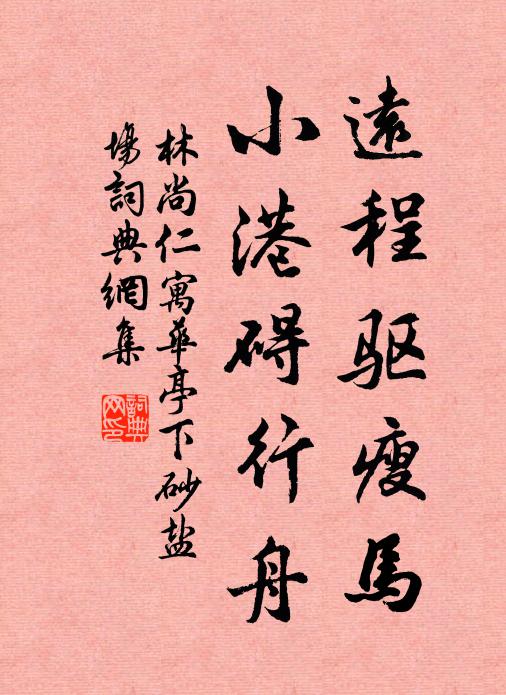 遠程驱瘦馬
小港碍行舟
林尚仁寓華亭下砂盐
場詞典網集
詞典
网印